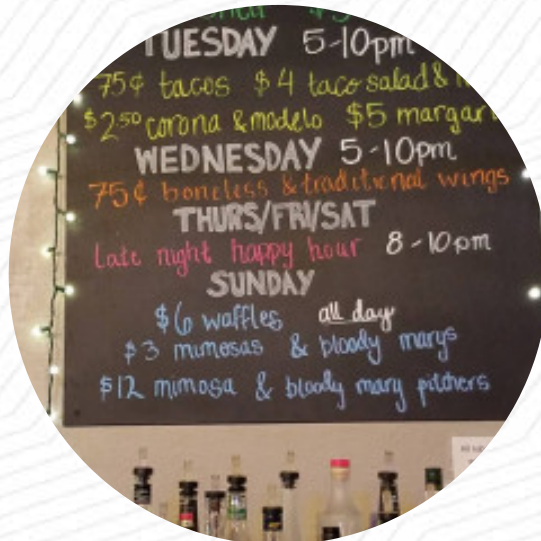 TUESDAY 5-10pm
75¢ tacos $4 taco salad &
$2.50 corona & modelo $5
WEDNESDAY 5-10pm
75¢ boneless & traditional wings
THURS/FRI/SAT
Late night happy hour 8-10pm
SUNDAY
$6 waffles all day
$3 mimosas & bloody marys
$12 mimosa & bloody mary pitchers